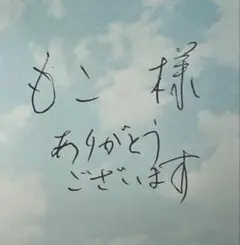 もこ 様
ありがとう
ございます